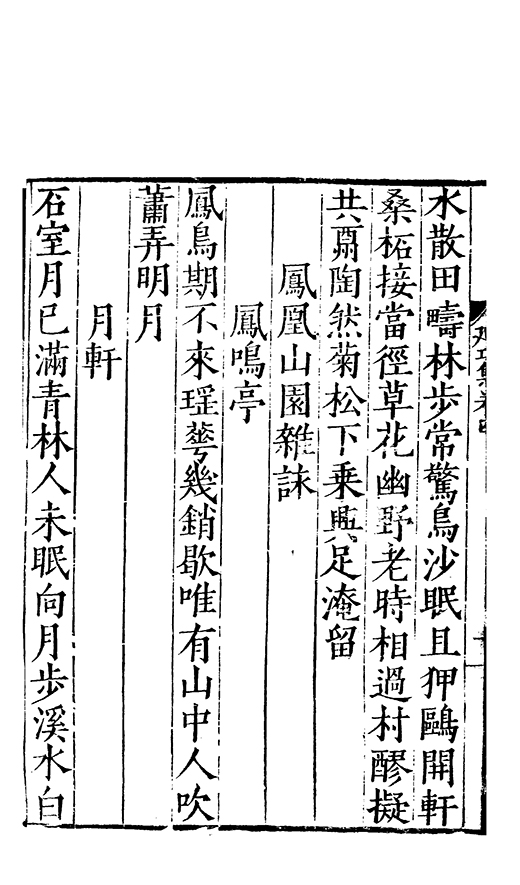 水散田疇林步常驚鳥沙眠且狎鷗開軒
桑柘接當徑草花幽野老時相過村醪擬
共𠷎陶然菊松下乗興足淹留
鳳凰山園雜詠
鳳鳴亭
鳳鳥期不來瑶蕚幾銷歇唯有山中人吹
蕭弄明月
月軒
石室月已滿青林人未眠向月步溪水白